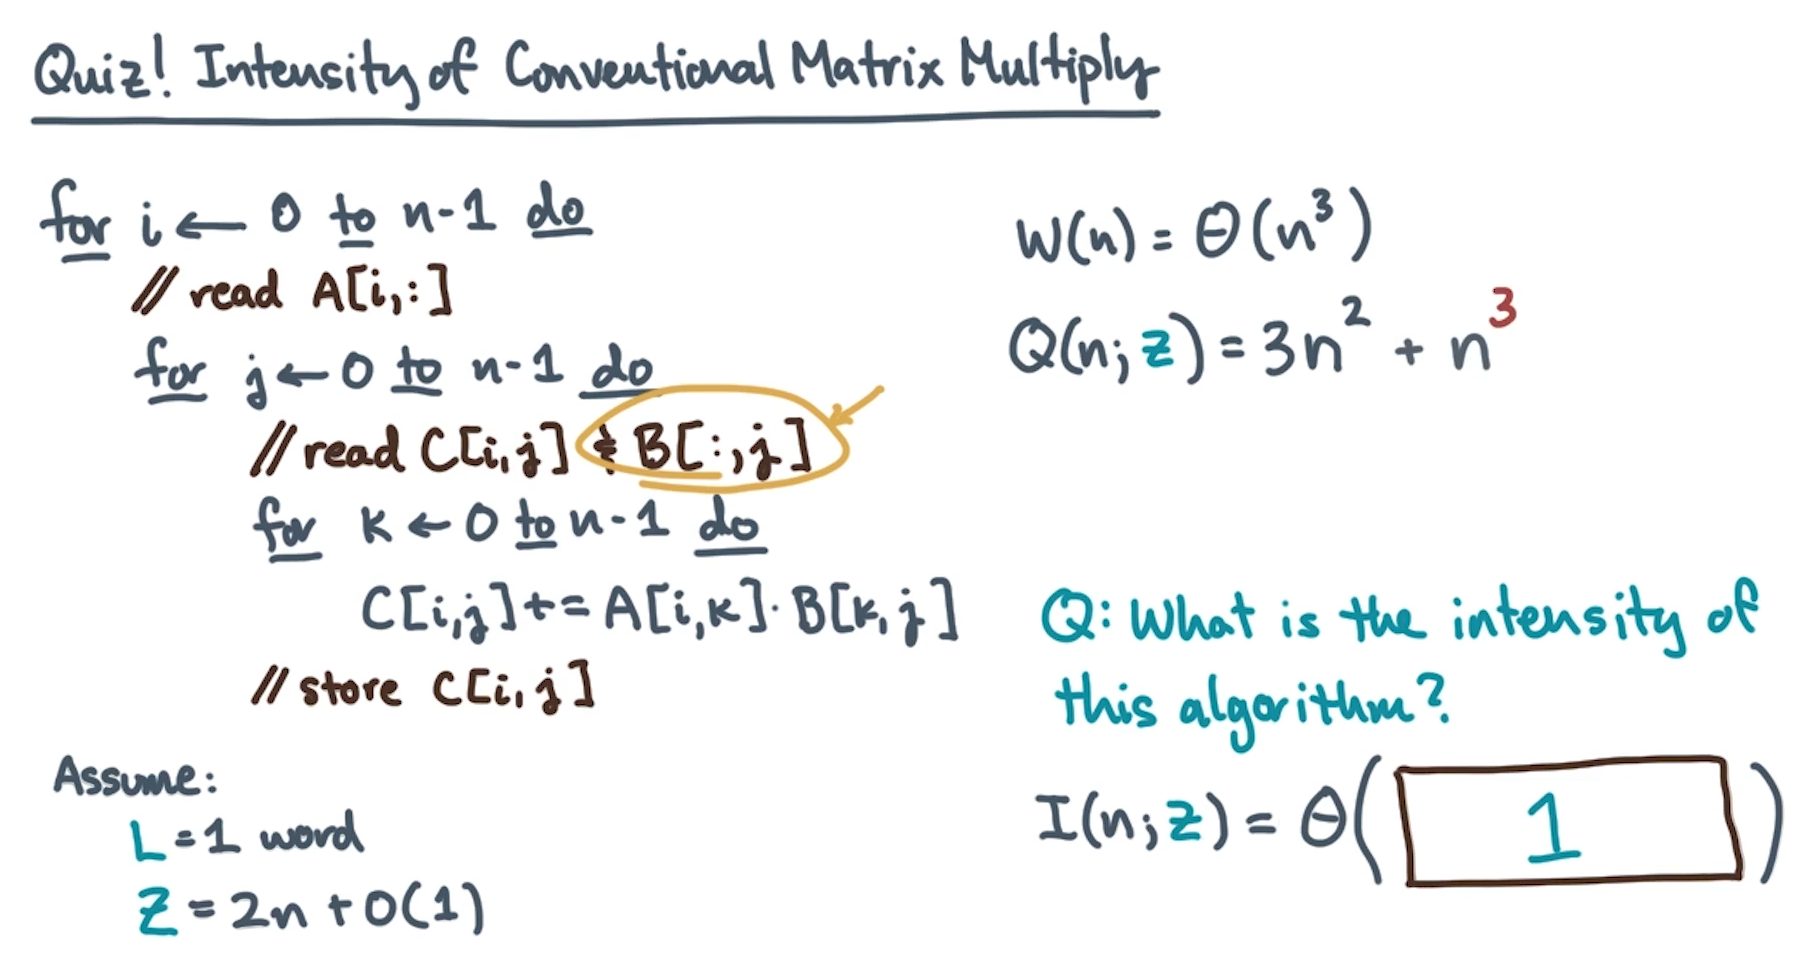 Quiz! Intensity of Conventional Matrix Multiply
for i ← 0 to n-1 do
// read A[i,:]
for j ← 0 to n-1 do
// read C[i,j] & B[:,j]
for k ← 0 to n-1 do
C[i,j] += A[i,k]·B[k,j]
// store C[i,j]
Assume:
L = 1 word
Z = 2n + O(1)
W(n) = Θ(n³)
Q(n; Z) = 3n² + n³
Q: What is the intensity of
this algorithm?
I(n; Z) = Θ( 1 )